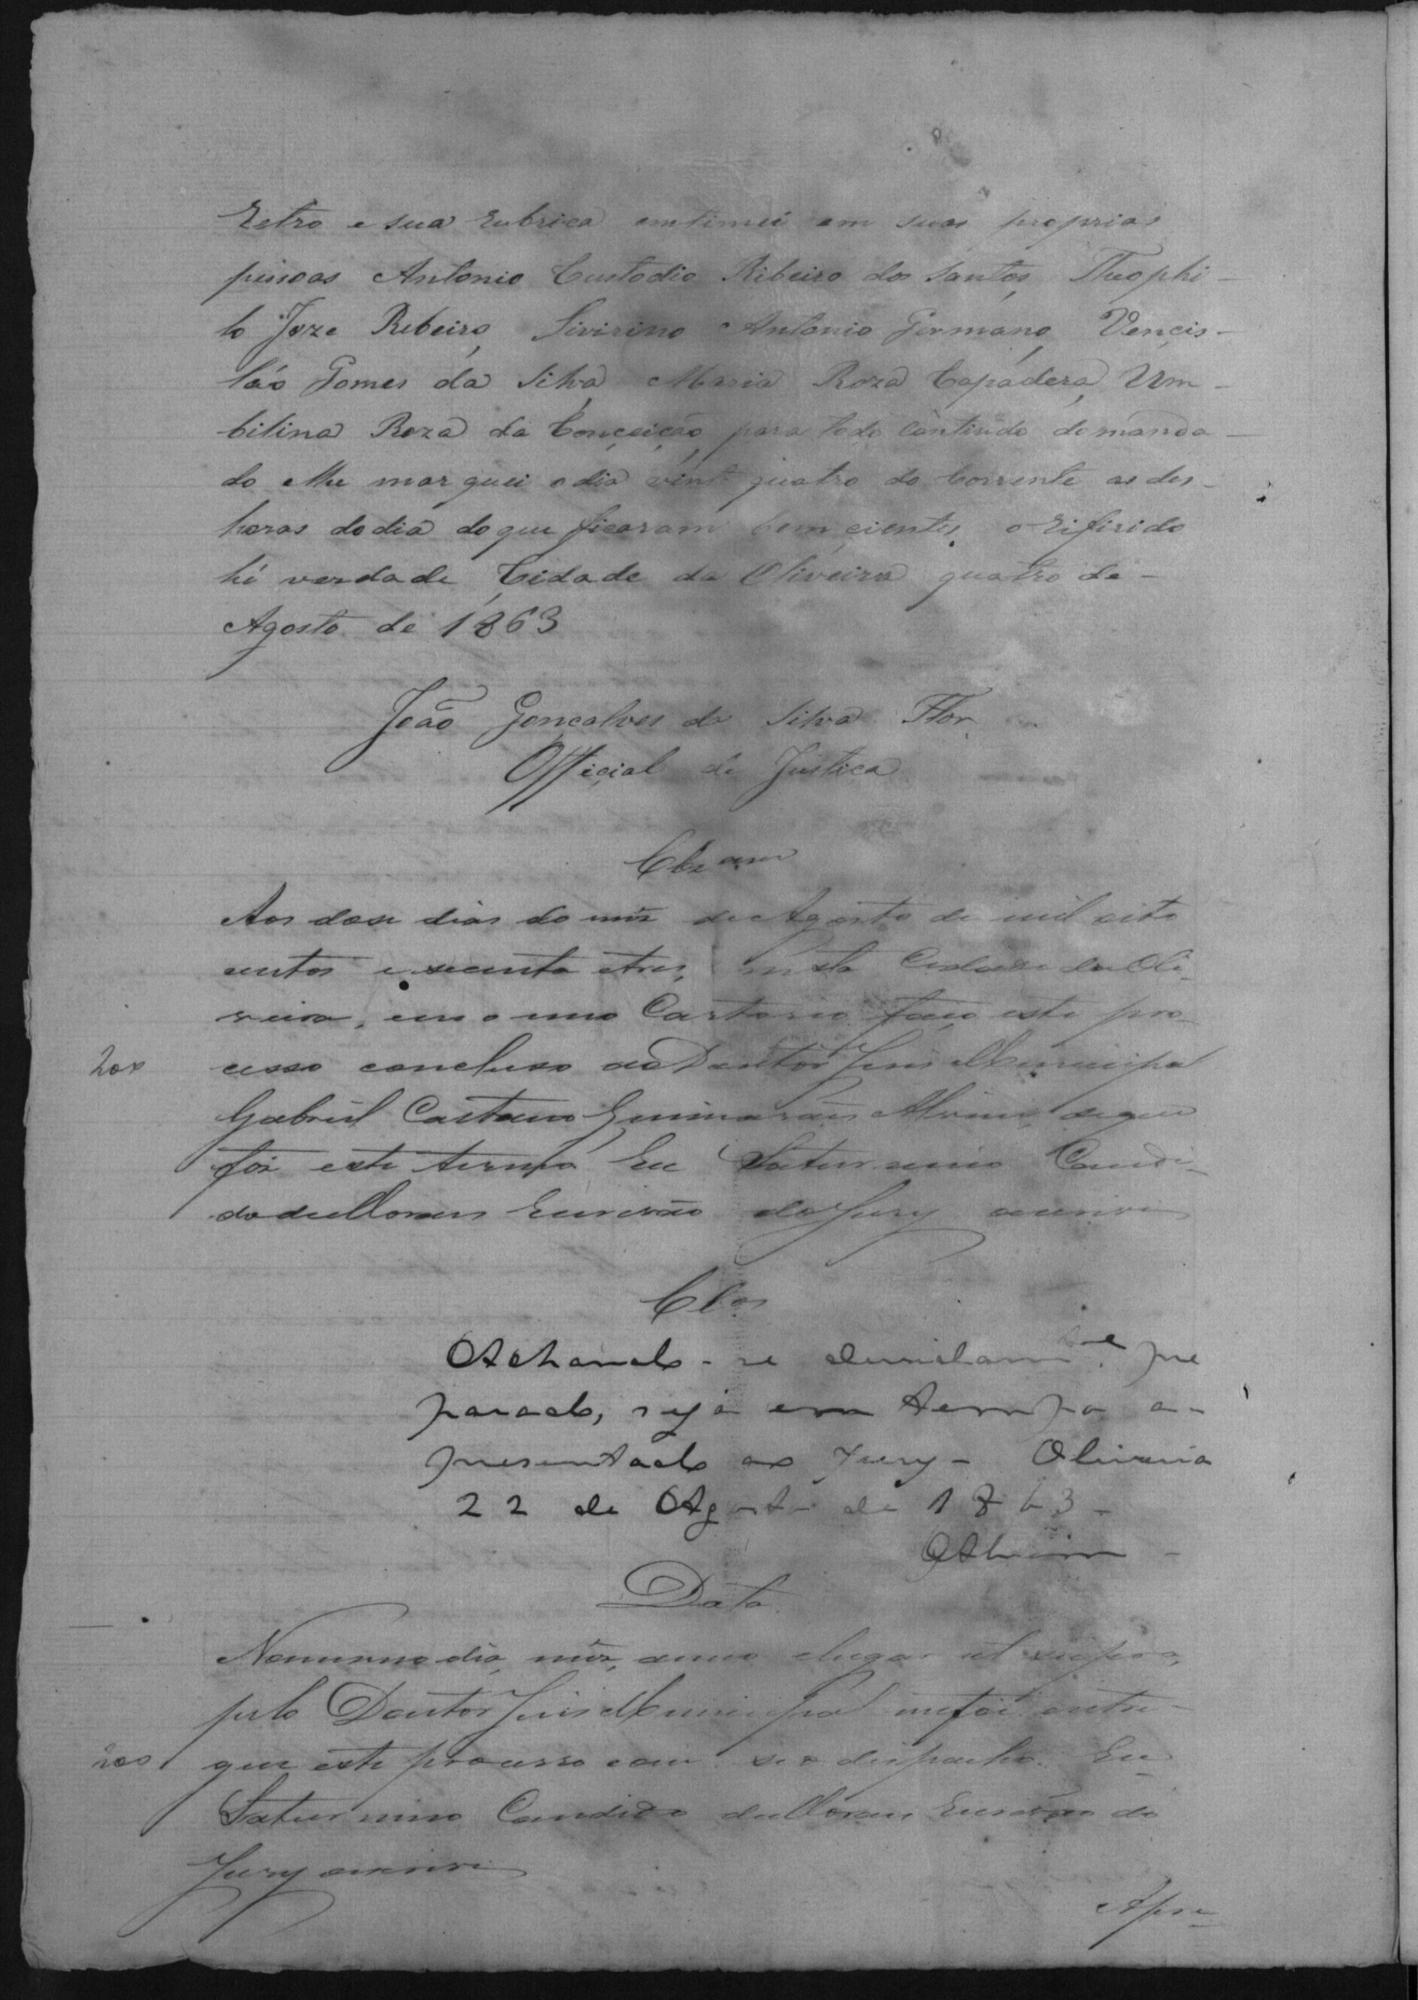 Retro e sua rubrica entimei em suas proprias
pessoas Antonio Custodio Ribeiro dos Santos, Theophi-
lo Joze Ribeiro, Sivirino Antonio Germano, Vencis-
láo Gomes da Silva, Maria Roza Capadera, Um-
bilina Roza da Conceição para todo contiudo do manda-
do e lhe marquei o dia vinte quatro do Corrente as des-
horas do dia do que ficaram bem cientes, o rifirido
hé verdade, Cidade da Oliveira quatro de-
Agosto de 1863
João Gonçalves da Silva Flor
Official de Justiça
Clzam
Aos dose dias do mês de Agosto de mil oito
centos e secenta e tres, nesta Cidade da Oli-
veira, em o meo Cartorio faço este pro-
200
cesso concluso ao Doutor Juis Municipal
Gabriel Caetano Guimarães Alvim, de que
fiz este termo. Eu Saturnino Candi-
do de Moraes Escrivão do Jury escrevi
Clos
Achando-se devidamte pre
parado, seja em tempo a-
presentado ao Jury- Oliveira
22 de Agosto de 1863-
Alvim
Data
No mesmo dia, mês, anno e lugar
pelo Doutor Juis Municipal me foi entre-
200
gue este processo com seo despacho. Eu
Saturnino Candido de Moraes Escrivão do
Jury escrevi
Apre-